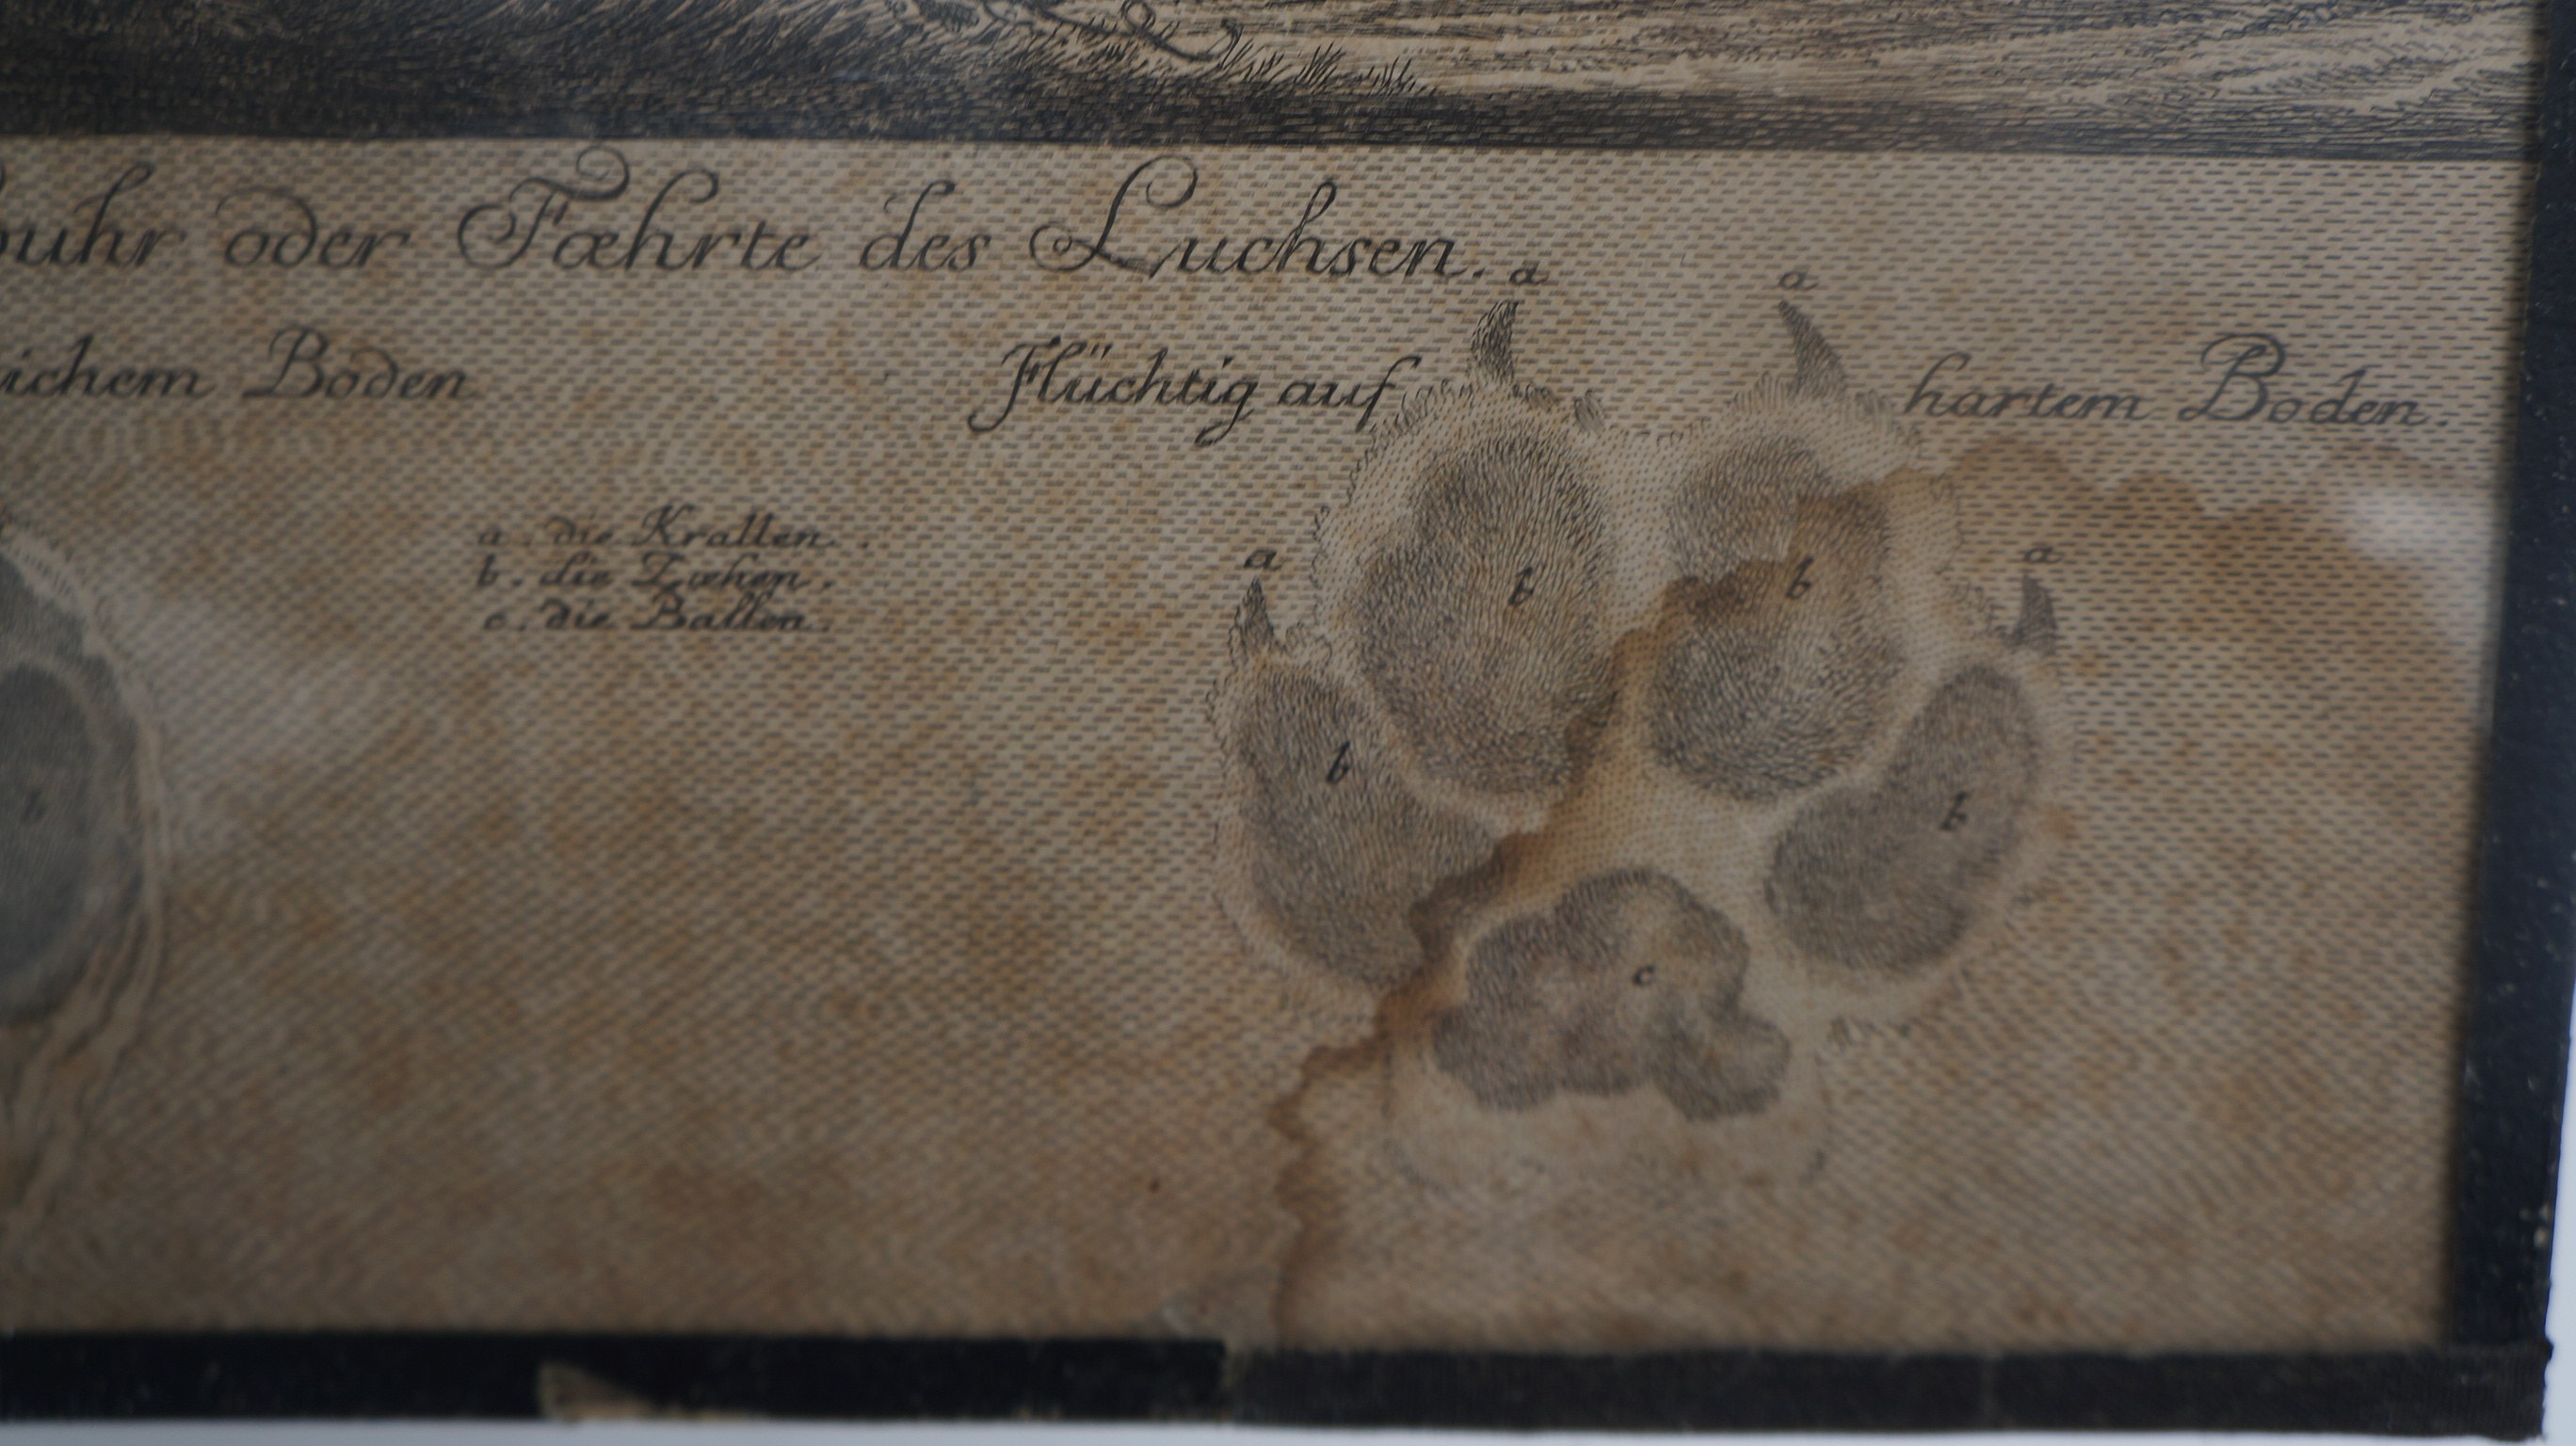 oder Fæhrte des Luchsen.
Boden
Flüchtig auf hartem Boden.
a. die Krallen.
b. die Zæhen.
c. die Ballen.
a
a
a
a
b
b
b
b
c